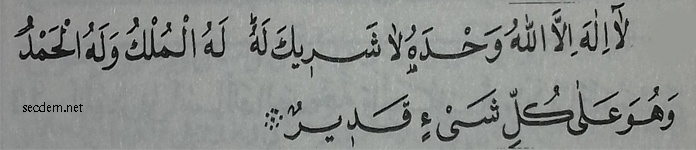 لَٓا اِلٰهَ اِلَّا اللّٰهُ وَحْدَهُ لَا شَرٖيكَ لَهُ لَهُ الْمُلْكُ وَلَهُ الْحَمْدُ
وَهُوَ عَلٰى كُلِّ شَىْءٍ قَدٖيرٌ
secdem.net